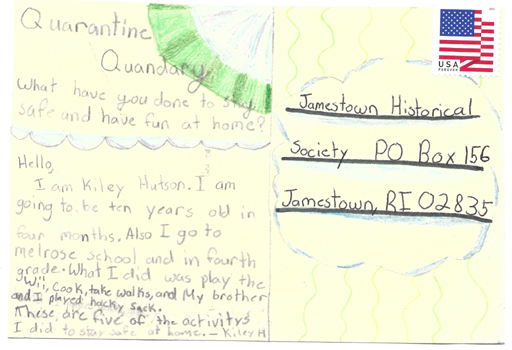 Quarantine
Quandary,
What have you done to stay
safe and have fun at home?
Hello,
I am Kiley Hutson. I am
going to be ten years old in
four months. Also I go to
melrose school and in fourth
grade. What I did was play the
Wii, Cook, take walks, and My brother
and I played hacky sack.
These, are five of the activitys
I did to stay safe at home. - Kiley H
USA
FOREVER
Jamestown Historical
Society PO Box 156
Jamestown, RI 02835